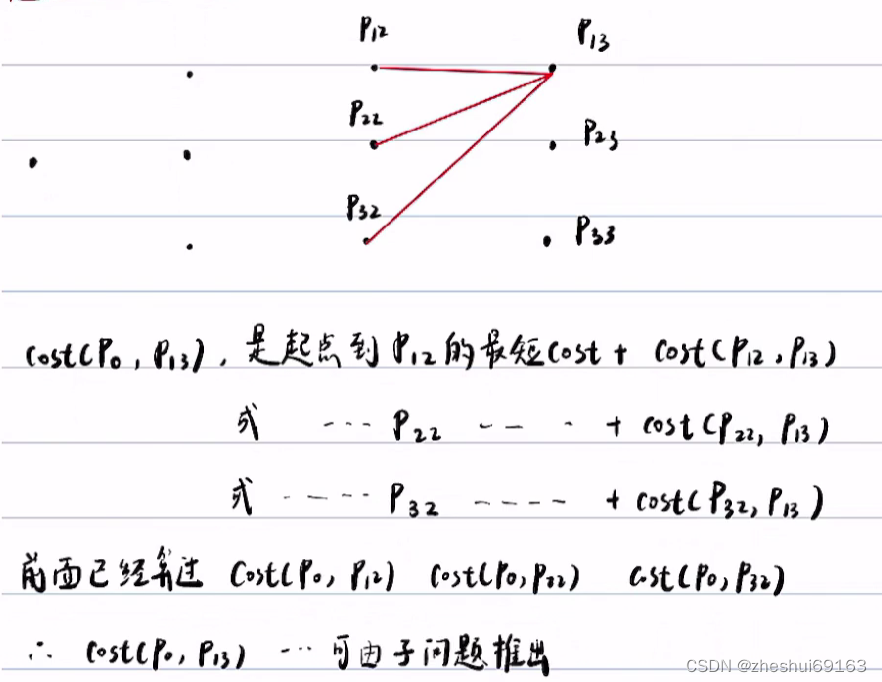 P12 P13
P22
P23
P32
P33
cost(P0, P13), 是起点到P12的最短cost + cost(P12, P13)
或 ... P22 ... + cost(P22, P13)
或 ..... P32 ..... + cost(P32, P13)
前面已经算过 cost(P0, P12) cost(P0, P22) cost(P0, P32)
∴ cost(P0, P13) ... 可由子问题推出
CSDN @zheshui69163